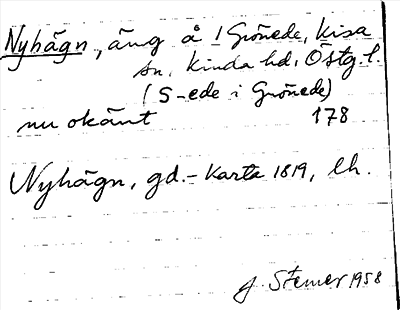 Nyhägn, äng å 1 Grönede, Kisa
sn, Kinda hd, Östg. l.
(S-ede i Grönede)
nu okänt 178
Nyhägn, gd. - Karta 1819, lh.
J. Sterner 1958